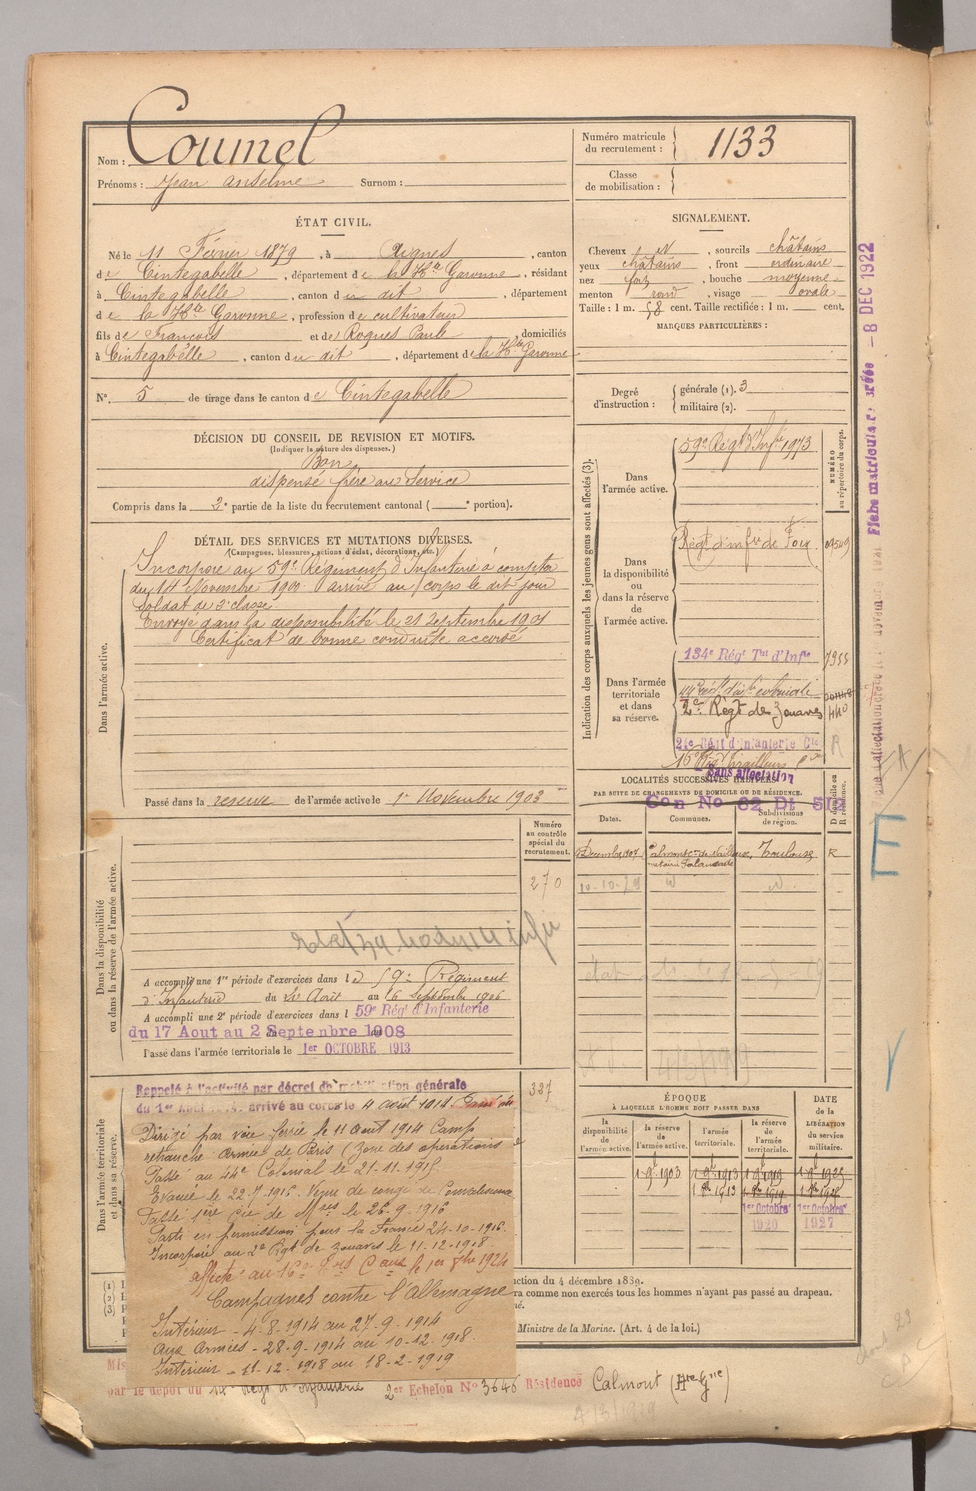 Nom : Coumel
Prénoms : Jean Anselme Surnom :
Numéro matricule du recrutement : 1133
Classe de mobilisation :
ÉTAT CIVIL.
Né le 11 Février 1879, à Aignes, canton
de Cintegabelle, département de la Hte Garonne, résidant
à Cintegabelle, canton du dit, département
de la Hte Garonne, profession de cultivateur
fils de François et de Roques Paule domiciliés
à Cintegabelle, canton du dit, département de la Hte Garonne
N° 5 de tirage dans le canton de Cintegabelle
SIGNALEMENT.
Cheveux N, sourcils châtains
yeux châtains, front ordinaire
nez fort, bouche moyenne
menton rond, visage ovale
Taille : 1 m. 58 cent. Taille rectifiée : 1 m. cent.
MARQUES PARTICULIÈRES :
Degré d'instruction : générale (1). 3
militaire (2).
DÉCISION DU CONSEIL DE REVISION ET MOTIFS.
(Indiquer la nature des dispenses.)
Bon
dispensé frère au Service
Compris dans la 2e partie de la liste du recrutement cantonal (e portion).
DÉTAIL DES SERVICES ET MUTATIONS DIVERSES.
(Campagnes, blessures, actions d'éclat, décorations, etc.)
Dans l'armée active.
Incorporé au 59e Régiment d'Infanterie à compter
du 14 Novembre 1900 arrivé au corps le dit jour
Soldat de 2e classe.
Envoyé dans la disponibilité le 21 Septembre 1901
Certificat de bonne conduite accordé
Passé dans la réserve de l'armée active le 1er Novembre 1903
Indication des corps auxquels les jeunes gens sont affectés (3).
NUMÉRO au répertoire du corps.
Dans l'armée active.
59e Régt d'Infie 1973
Dans la disponibilité ou dans la réserve de l'armée active.
Régt d'infie de Foix
Dans l'armée territoriale et dans sa réserve.
134e Régt Tal d'Infie 7955
44e régt d'infie coloniale
2e Régt de Zouaves
24e Régt d'Infanterie Cle
16e Régt Tirailleurs
Sans affectation
LOCALITÉS SUCCESSIVES HABITÉES
PAR SUITE DE CHANGEMENTS DE DOMICILE OU DE RÉSIDENCE.
Con No 82 Dt
Dates. Communes. Subdivisions de région. D domicile ou R résidence.
Décembre 1907 Calmont Toulouse R
10-10-29
Fiche matricule créée - 8 DEC 1922
Numéro au contrôle spécial du recrutement.
270
Dans la disponibilité ou dans la réserve de l'armée active.
A accompli une 1re période d'exercices dans le 59e Régiment
d'Infanterie du 20 Août au 16 Septembre 1906
A accompli une 2e période d'exercices dans l 59e Régt d'Infanterie
du 17 Aout au 2 Septembre 1908
Passé dans l'armée territoriale le 1er OCTOBRE 1913
Dans l'armée territoriale et dans sa réserve.
327
Rappelé à l'activité par décret de mobilisation générale
du 1er Août 1914, arrivé au corps le 4 août 1914.
Dirigé par voie ferrée le 11 aout 1914 Camp
retranché Armées de Paris (Zone des opérations
Passé au 44e Colonial le 21.11.1915
Évacué le 22.7.1916.
Passé 1ère Cie de Mses le 26.9.1916
Parti en permission pour la France 24-10-1916.
Incorporé au 2e Rgt de Zouaves le 11-12-1918.
Campagnes contre l'Allemagne
Intérieur - 4-8-1914 au 27-9-1914
Aux Armées - 28-9-1914 au 10-12-1918.
Intérieur - 11-12-1918 au 18-2-1919
ÉPOQUE
À LAQUELLE L'HOMME DOIT PASSER DANS
la disponibilité de l'armée active. la réserve de l'armée active. l'armée territoriale. la réserve de l'armée territoriale.
DATE de la LIBÉRATION du service militaire.
1 9bre 1903 1 9bre 1913 1 9bre 1919 1 9bre 1925
1er Octobre 1920 1er Octobre 1927
ction du 4 décembre 1889.
ra comme non exercés tous les hommes n'ayant pas passé au drapeau.
Ministre de la Marine. (Art. 4 de la loi.)
par le dépôt du 14e Régt d'Infanterie 2er Echelon No 3646 Résidence Calmont (Hte Gne)